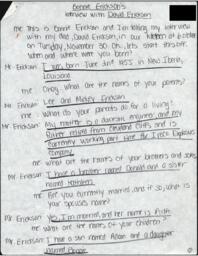 Bennie Erickson's
Interview with David Erickson
me: This is Bennie Erickson and I'm doing my interview
with my dad, David Erickson, in our kitchen at
on Tuesday, November 30. Oh, lets start this off
when and where were you born?
Mr. Erickson: I was born June 2nd 1955 in New Iberia,
Louisiana
me: Okay, what are the names of your parents?
Mr. Erickson: Lee and Mickey Erickson
me: What do your parents do for a living?
Mr. Erickson: My mother is a and my
father retired from and is
currently working part time for
company
me: What are the names of your brothers and sisters
Mr. Erickson: I have a brother named Donald and a sister
named Kathleen
me: Are you currently married, and if so, what is
your spouse's name?
Mr. Erickson: Yes, I'm married, and her name is Ruth
me: What are the names of your children?
Mr. Erickson: I have a son named Adam and a daughter
named